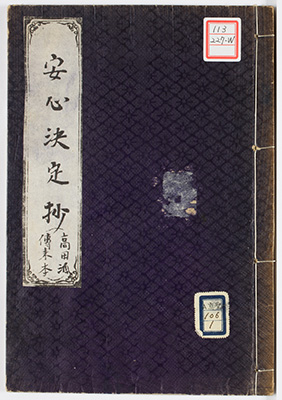 安心決定抄
高田派
傳来本
113
227-W
106
1